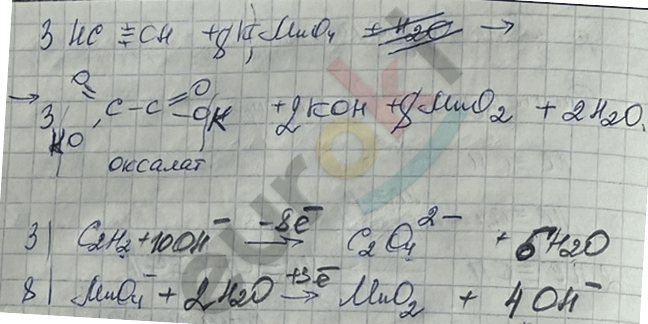 3 HC ≡ CH + 8 KMnO₄ + H₂O →
→ 3 KO(O=)C–C(=O)OK + 2KOH + 8MnO₂ + 2H₂O.
оксалат
3 | C₂H₂ + 10OH⁻ –8ē → C₂O₄²⁻ + 6H₂O
8 | MnO₄⁻ + 2H₂O +3ē → MnO₂ + 4OH⁻
eurokt